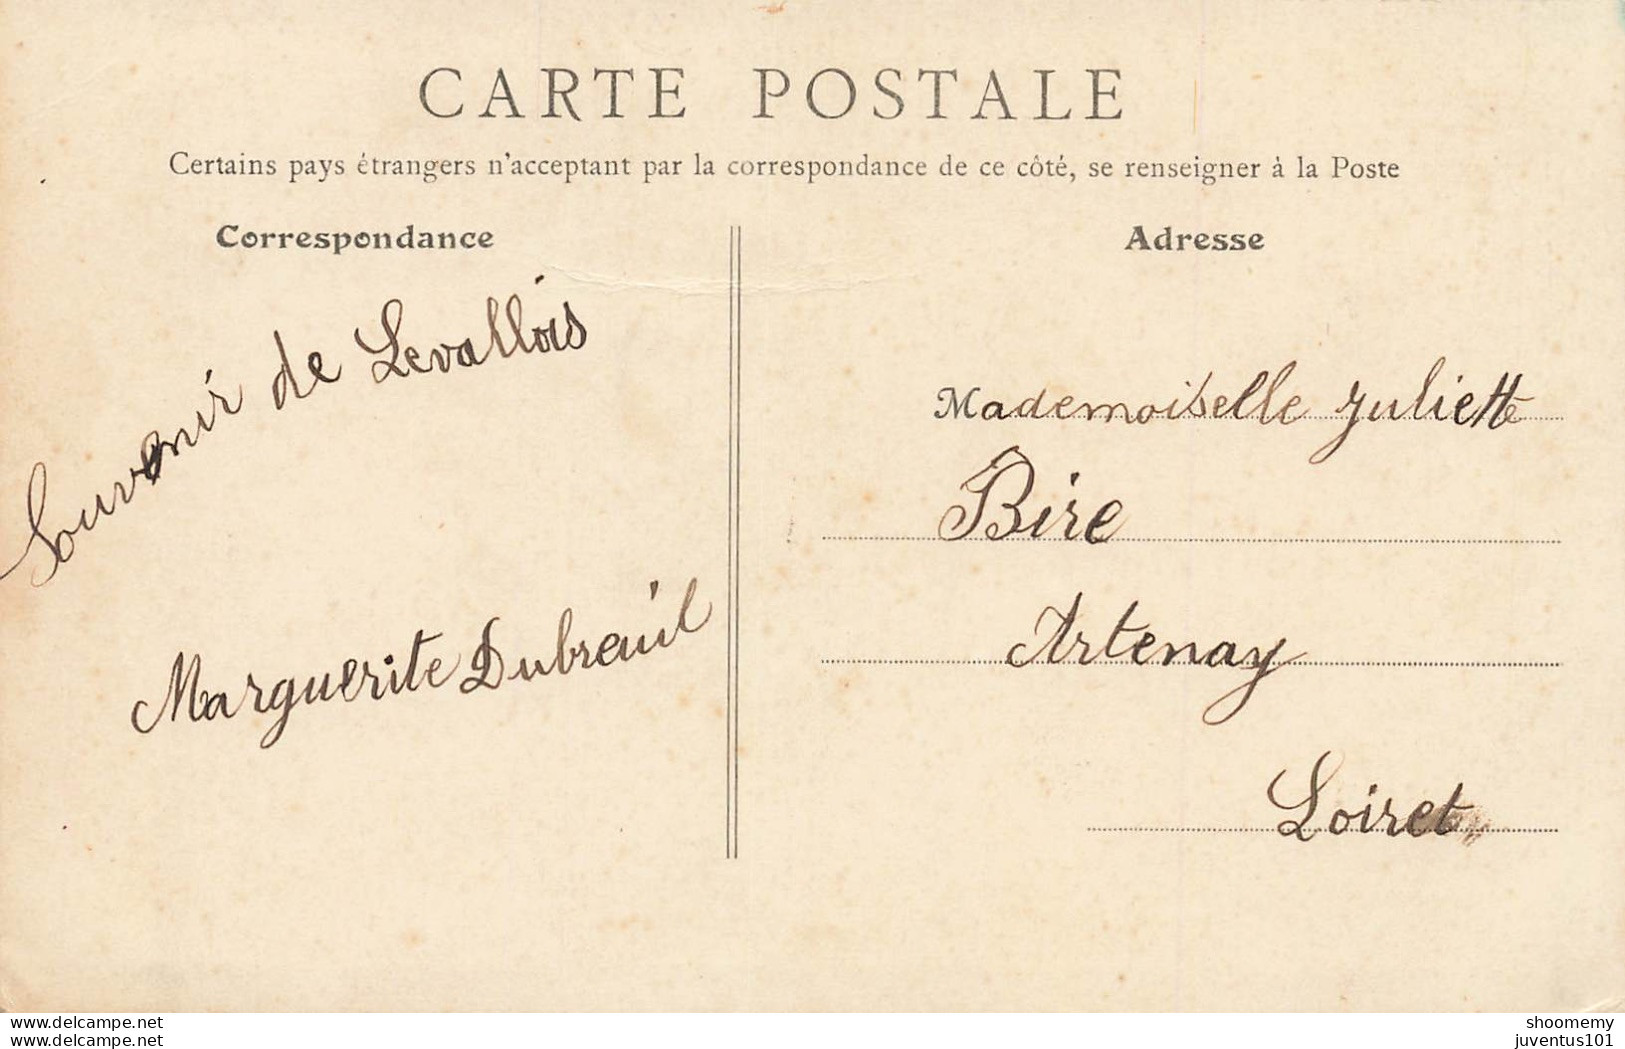 CARTE POSTALE
Certains pays étrangers n'acceptant par la correspondance de ce côté, se renseigner à la Poste
Correspondance
Souvenir de Levallois
Marguerite Dubreuil
Adresse
Mademoiselle Juliette
Bire
Artenay
Loiret
www.delcampe.net
shoomemy
juventus101